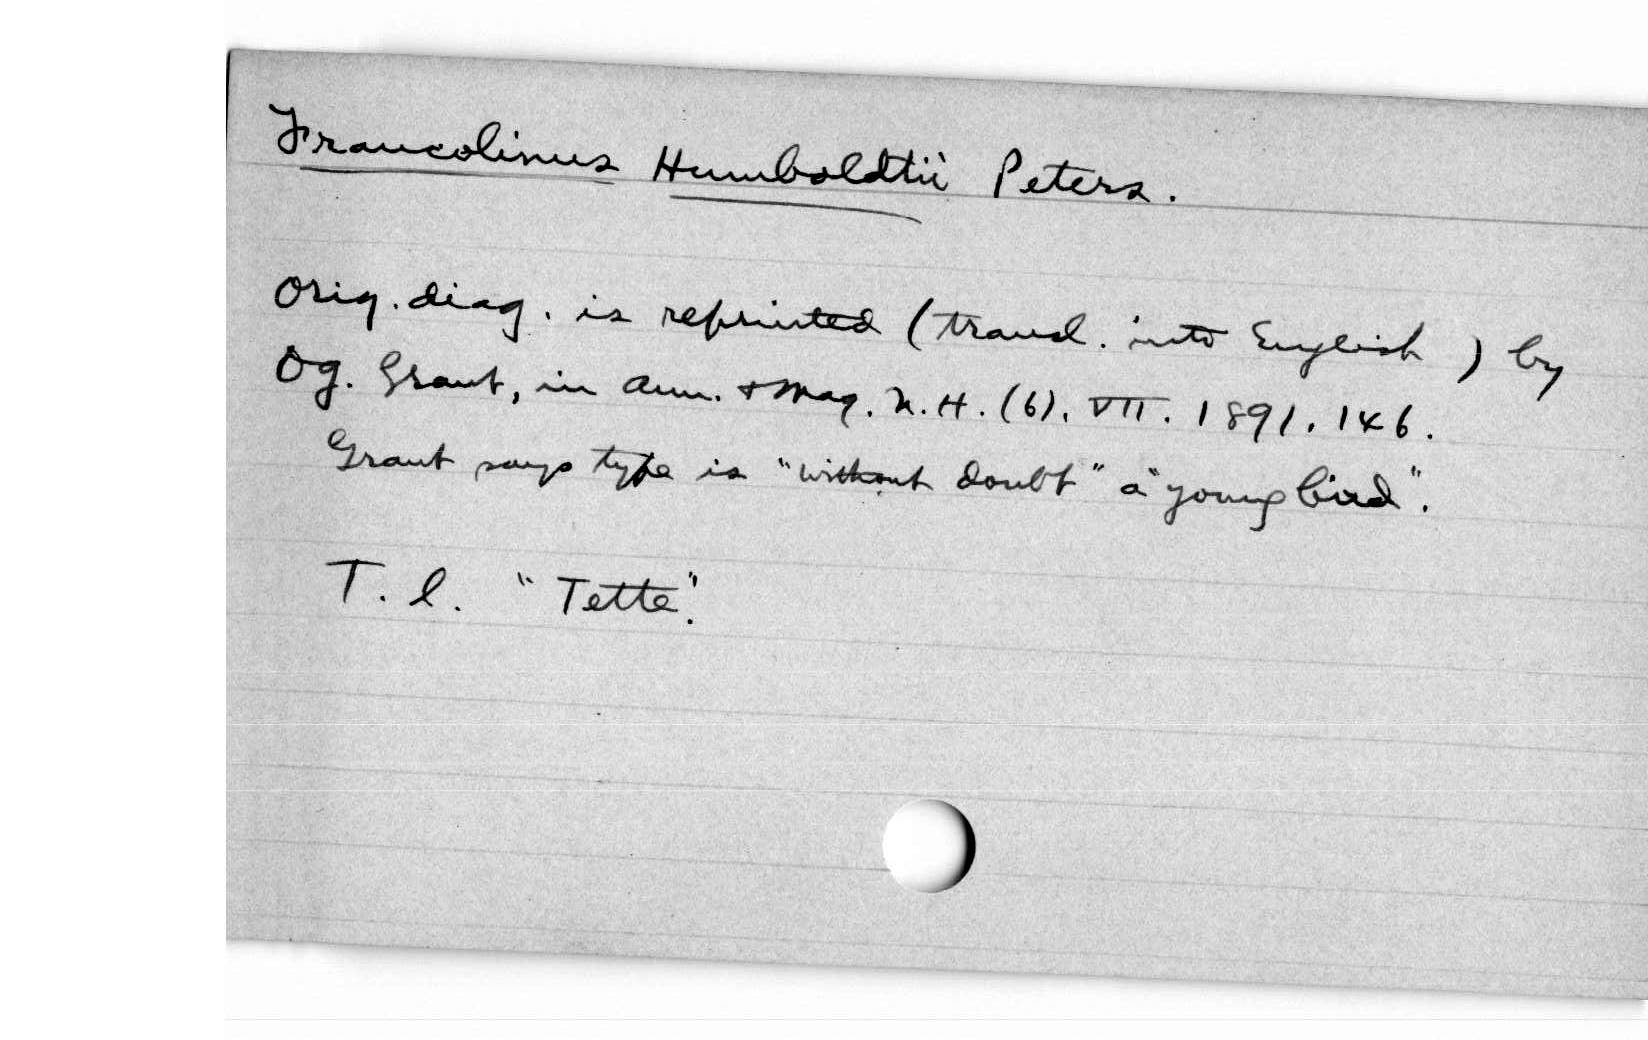 Francolinus Humboldtii Peters.
Orig. diag. is reprinted (transl. into English) by
Og. Grant, in Ann. + Mag. N. H. (6), VII. 1891, 146.
Grant says type is "without doubt" a "young bird".
T. l. "Tette".